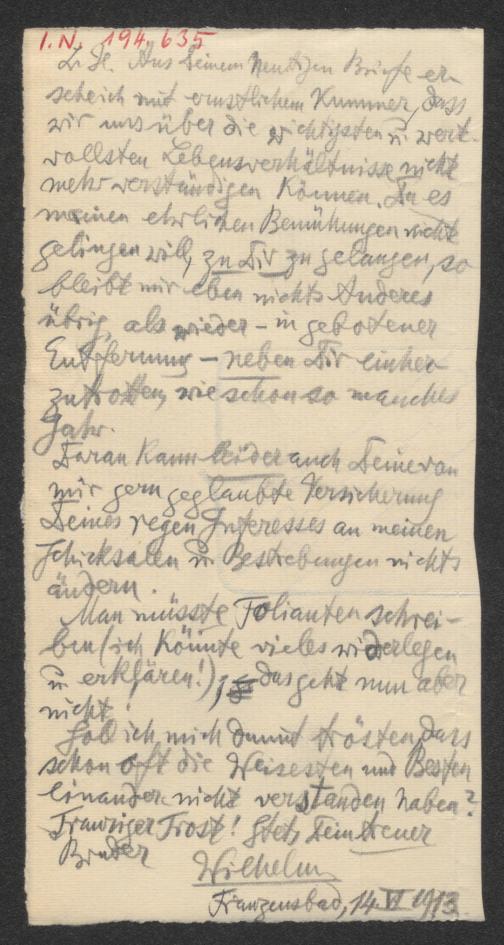 I.N. 194.635
L. Je. Aus Deinem heutigen Briefe er-
sehe ich mit ernstlichem Kummer, dass
wir uns über die wichtigsten u. wert-
vollsten Lebensverhältnisse nicht
mehr verständigen können. Da es
meinen ehrlichen Bemühungen nicht
gelingen will, zu Dir zu gelangen, so
bleibt mir eben nichts Anderes
übrig, als wieder – in gebotener
Entfernung – neben Dir einher
zutrotten, wie schon so manches
Jahr.
Daran kann leider auch Deine von
mir gern geglaubte Versicherung
Deines regen Interesses an meinen
Schicksalen u. Bestrebungen nichts
ändern.
Man müsste Folianten schrei-
ben (ich könnte vieles widerlegen
u. erklären!), das geht nun aber
nicht!
Soll ich mich damit trösten, dass
schon oft die Weisesten und Besten
einander nicht verstanden haben?
Trauriger Trost! Stets Dein treuer
Bruder
Wilhelm
Franzensbad, 14. VI 1913.